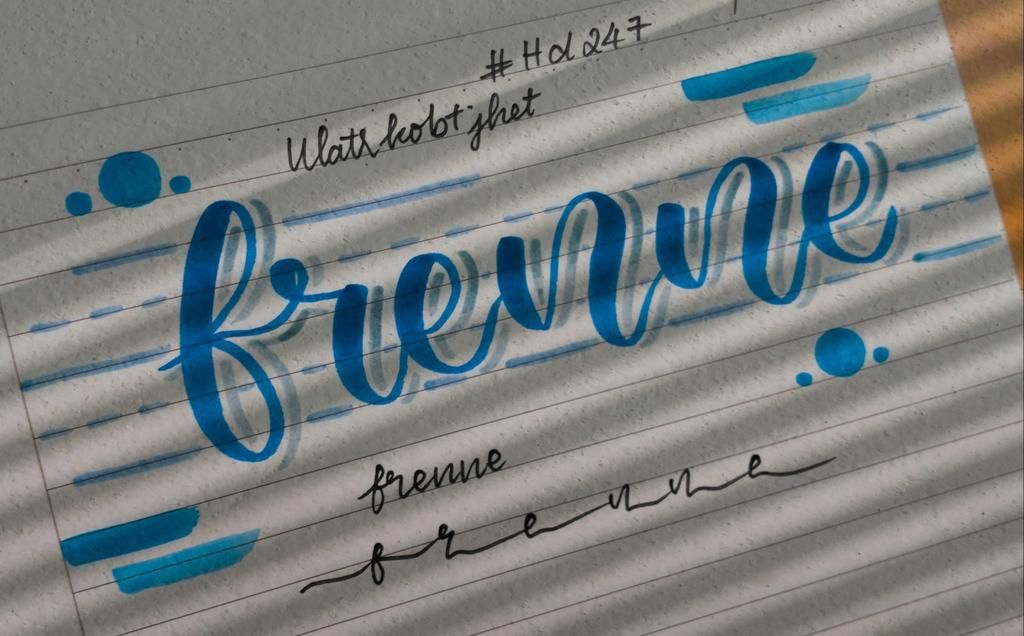 #Hd247
frenne
frenne
frenne